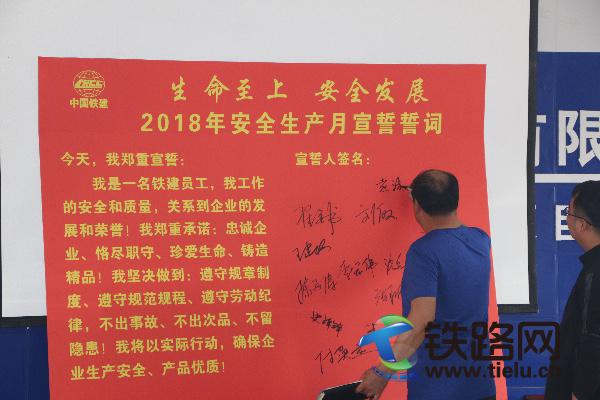 CRCC
中国铁建
生命至上 安全发展
2018年安全生产月宣誓誓词
今天，我郑重宣誓：
我是一名铁建员工，我工作
的安全和质量，关系到企业的发
展和荣誉！我郑重承诺：忠诚企
业、恪尽职守、珍爱生命、铸造
精品！我坚决做到：遵守规章制
度、遵守规范规程、遵守劳动纪
律，不出事故、不出次品、不留
隐患！我将以实际行动，确保企
业生产安全、产品优质！
宣誓人签名：
有限
铁路网
www.tielu.cn